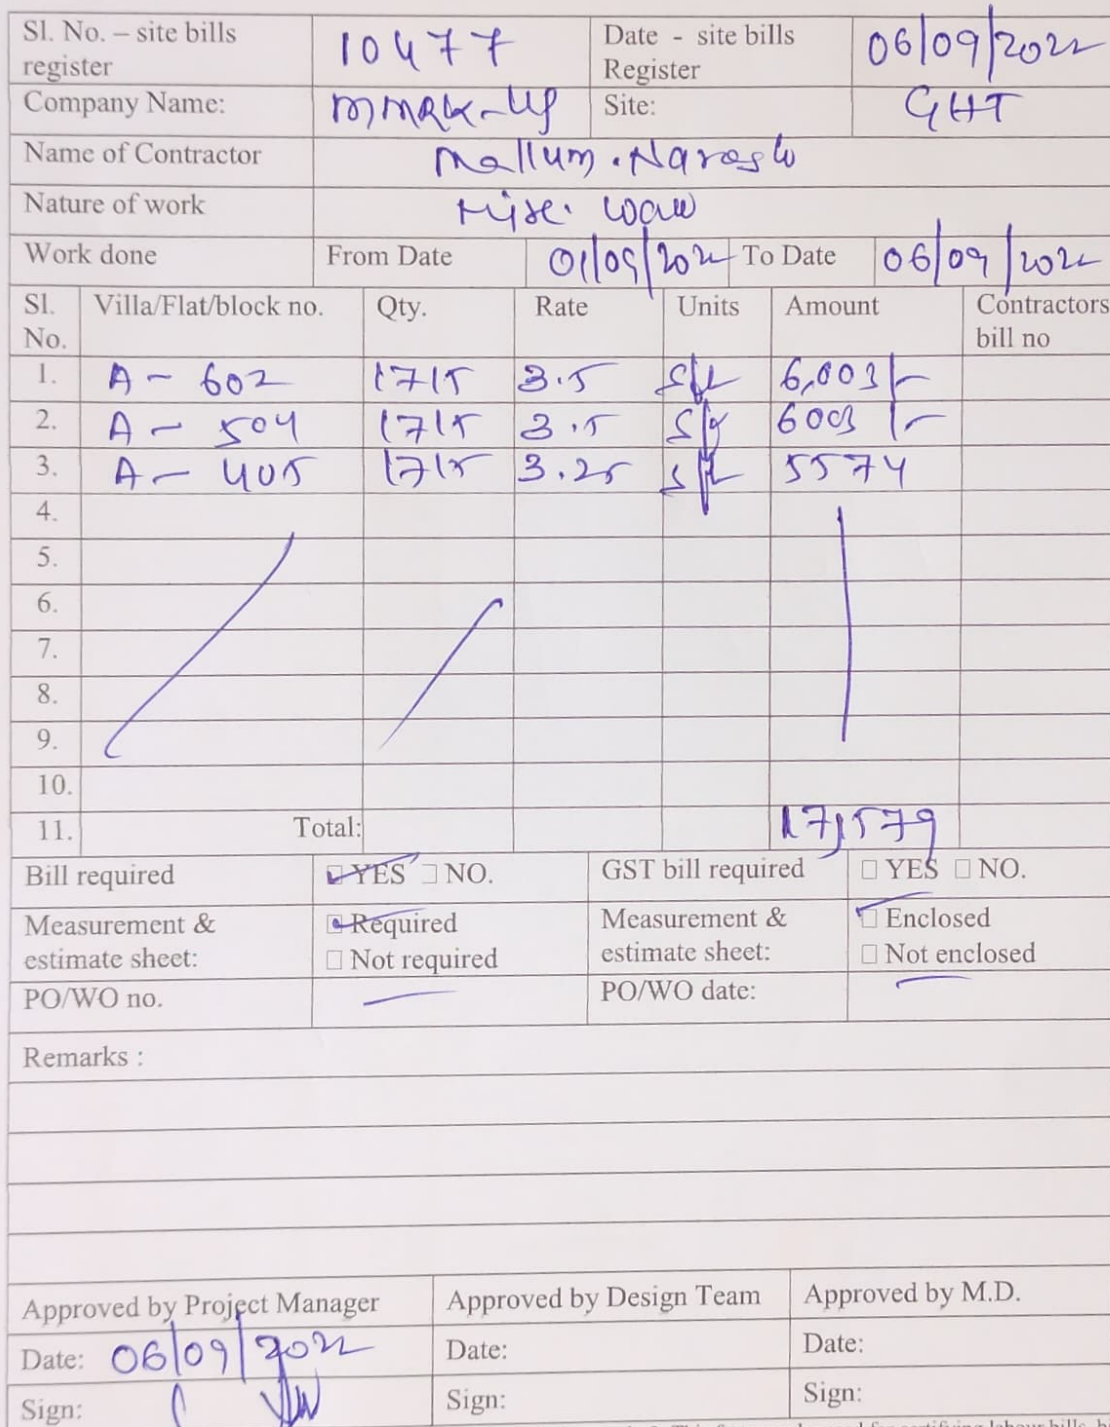 Sl. No. – site bills register 10477 Date - site bills Register 06/09/2022
Company Name: Site: GHT
Name of Contractor Mallum. 
Nature of work
Work done From Date 01/09/2022 To Date 06/09/2022
Sl. No. Villa/Flat/block no. Qty. Rate Units Amount Contractors bill no
1. A - 602 1715 3.5 sft 6,003/-
2. A - 504 1715 3.5 sft 6003 /-
3. A - 405 1715 3.25 sft 5574
4.
5.
6.
7.
8.
9.
10.
11. Total: 17,579
Bill required YES NO. GST bill required YES NO.
Measurement & estimate sheet: Required Not required Measurement & estimate sheet: Enclosed Not enclosed
PO/WO no. PO/WO date:
Remarks :
Approved by Project Manager Approved by Design Team Approved by M.D.
Date: 06/09/2022 Date: Date:
Sign: Sign: Sign: